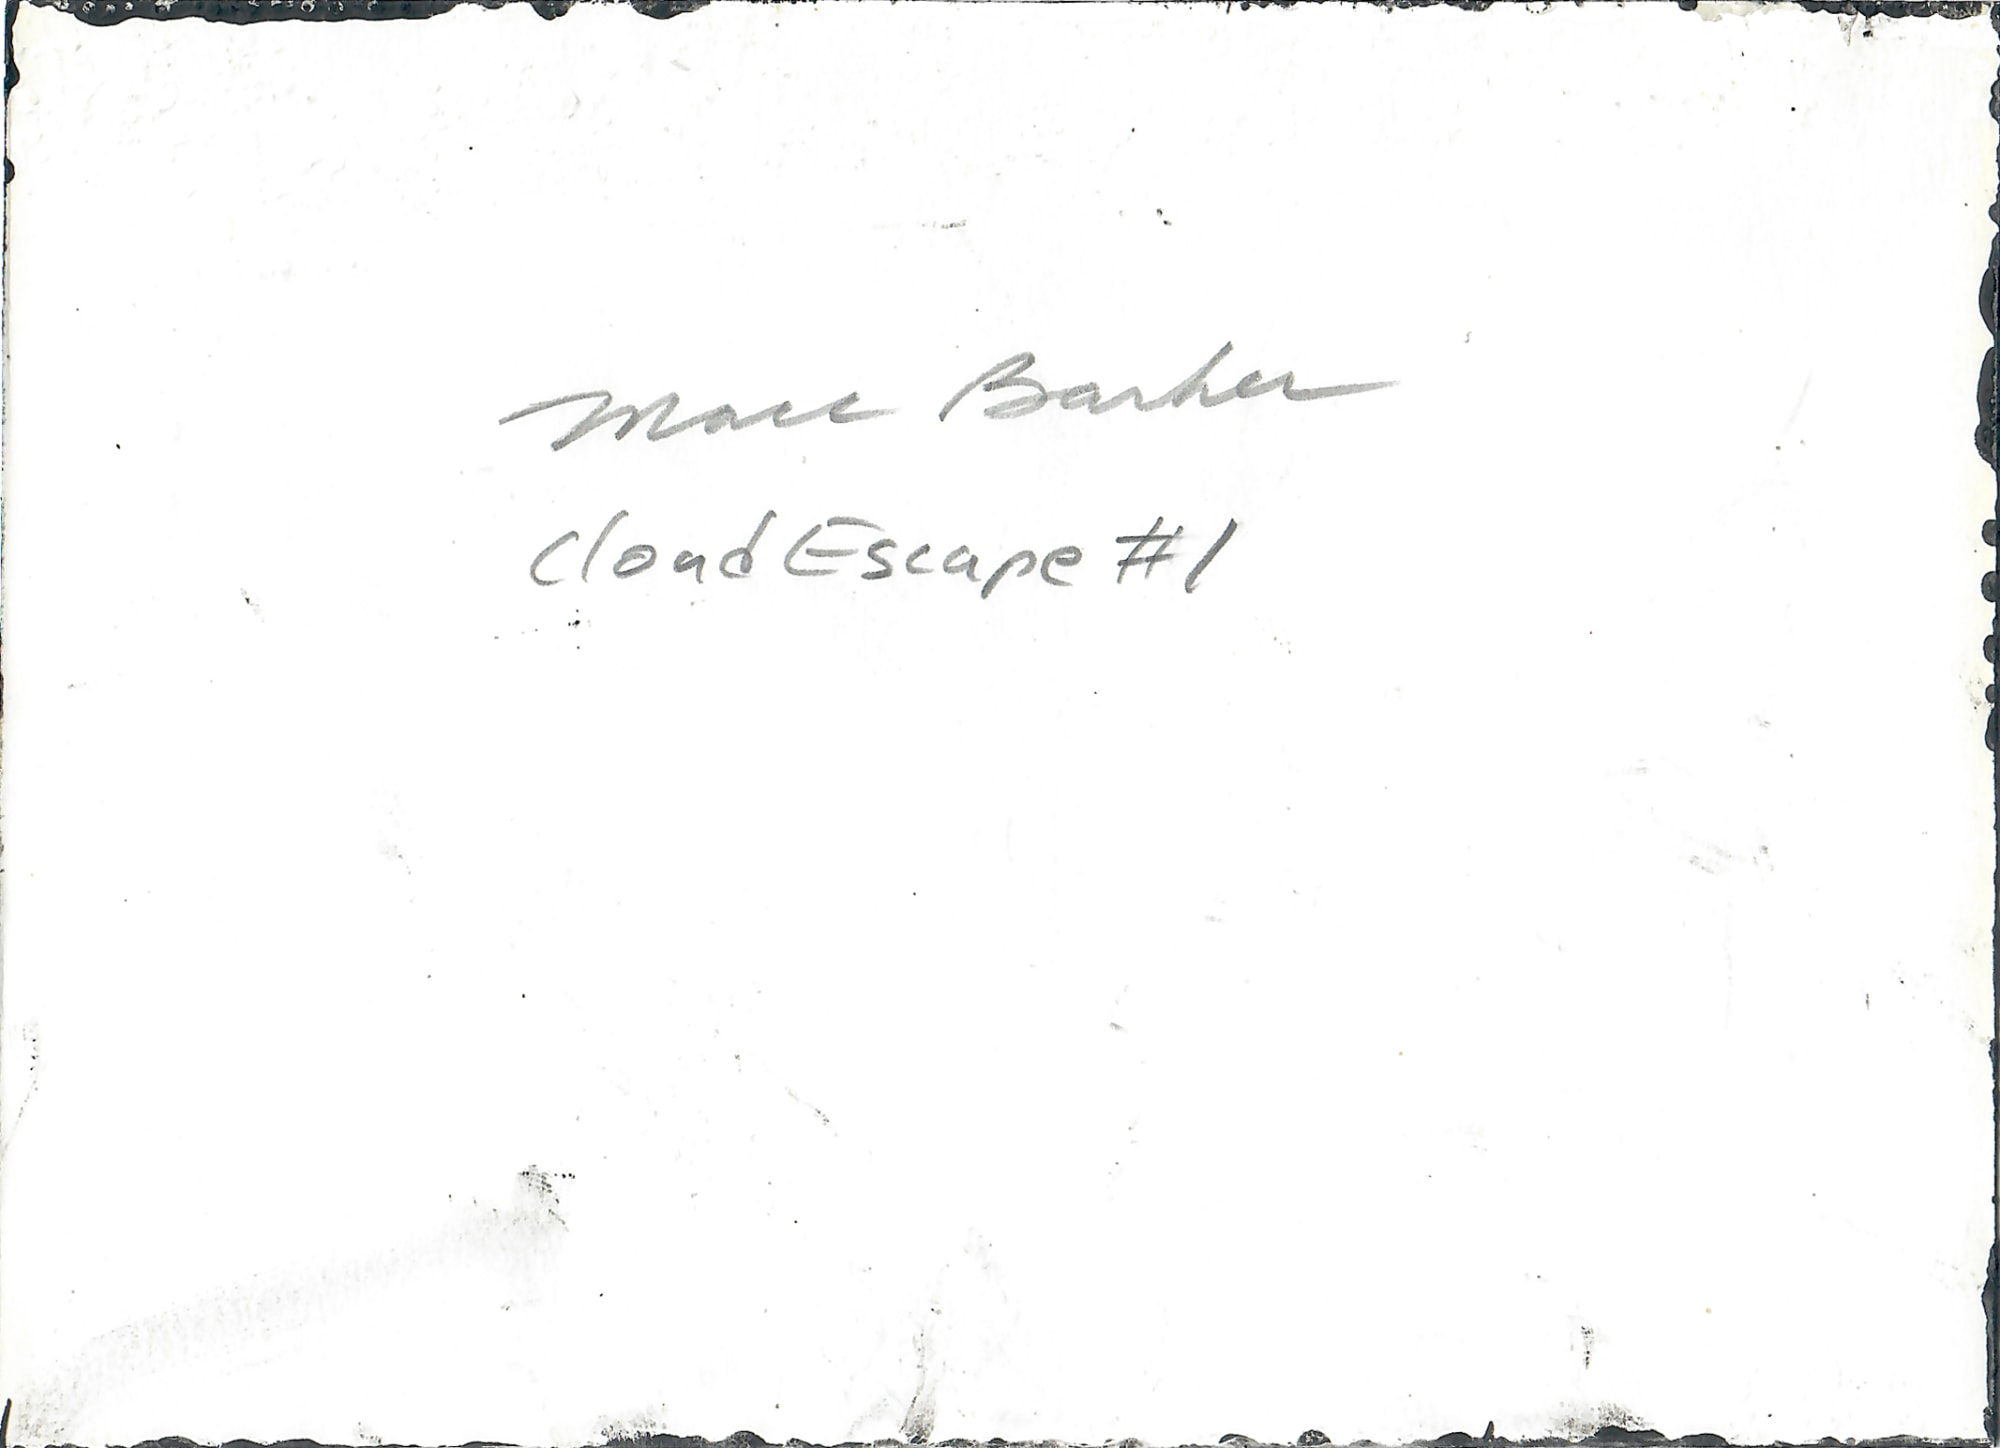 Marc Barker
Cloud Escape #1